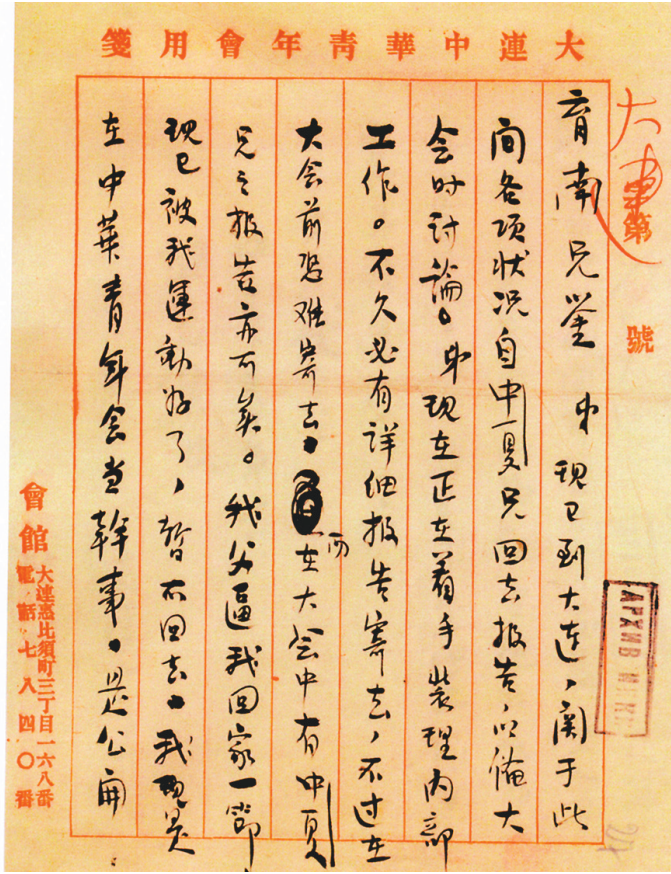 大連中華青年會用箋
大連字第 號
育南兄鉴 弟现已到大连，関于此
间各项状况自中夏兄回去报告，以俻大
会时討論。弟现在正在着手装理内部
工作。不久必有詳细报告寄去，不过在
大会前恐难寄去。而在大会中有中夏
兄之报告亦可矣。我父逼我回家一節
现已被我運動好了，暂不回去。我现是
在中華青年会当幹事。是公開
會館
大連惠比須町三丁目一六八番
電話七八四〇番
АРХИВ